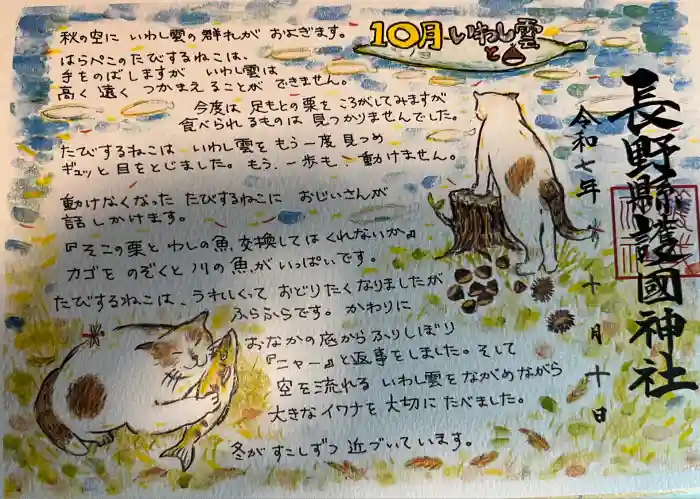 10月 いわし雲と
秋の空に いわし雲の群れが およぎます。
はらぺこのたびするねこは、
手をのばしますが いわし雲は
高く 遠く つかまえることが できません。
今度は 足もとの栗を ころがしてみますが
食べられるものは 見つかりませんでした。
たびするねこは いわし雲をもう一度 見つめ
ギュッと 目をとじました。もう、一歩も、動けません。
動けなくなった たびするねこに おじいさんが
話しかけます。
『そこの栗と わしの魚、交換してはくれないか。』
カゴを のぞくと 川の魚がいっぱいです。
たびするねこは、うれしくって おどりたくなりましたが
ふらふらです。かわりに
おなかの底からふりしぼり
『ニャー』と返事をしました。そして
空を流れる いわし雲をながめながら
大きなイワナを大切に たべました。
冬がすこしずつ 近づいています。
長野縣護國神社
令和七年 十月十日